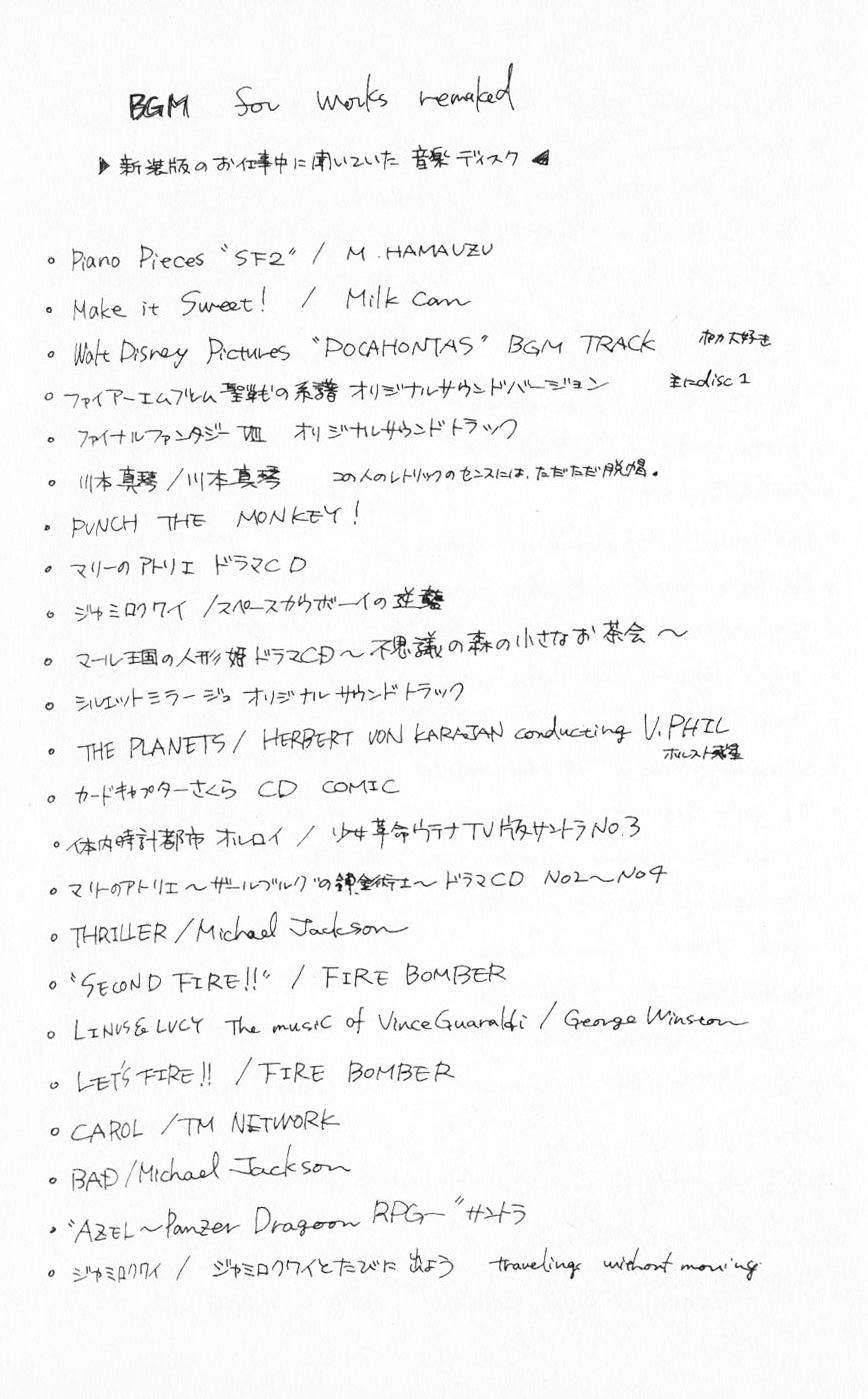 BGM for works remaked
▶新装版のお仕事中に聞いていた音楽ディスク◀
• Piano Pieces "SF2" / M. HAMAUZU
• Make it Sweet! / Milk Can
• Walt Disney Pictures "POCAHONTAS" BGM TRACK ポカ大好き
• ファイアーエムブレム聖戦の系譜 オリジナルサウンドバージョン 主にdisc 1
• ファイナルファンタジー VIII オリジナルサウンドトラック
• 川本真琴/川本真琴 この人のレトリックのセンスには、ただただ脱帽。
• PUNCH THE MONKEY!
• マリーのアトリエ ドラマCD
• ジャミロクワイ /スペースカウボーイの逆襲
• マール王国の人形姫ドラマCD〜不思議の森の小さなお茶会〜
• シルエットミラージュ オリジナルサウンドトラック
• THE PLANETS / HERBERT VON KARAJAN conducting V.PHIL
ホルスト惑星
• カードキャプターさくら CD COMIC
• 体内時計都市オルロイ / 少女革命ウテナTV版サントラNO.3
• マリーのアトリエ〜ザールブルグの錬金術士〜ドラマCD NO2〜NO4
• THRILLER /Michael Jackson
• "SECOND FIRE!!" / FIRE BOMBER
• LINUS & LUCY The music of Vince Guaraldi / George Winston
• LET'S FIRE!! /FIRE BOMBER
• CAROL /TM NETWORK
• BAD/Michael Jackson
• "AZEL〜Panzer Dragoon RPG–"サントラ
• ジャミロクワイ / ジャミロクワイとたびに出よう travelings without moving